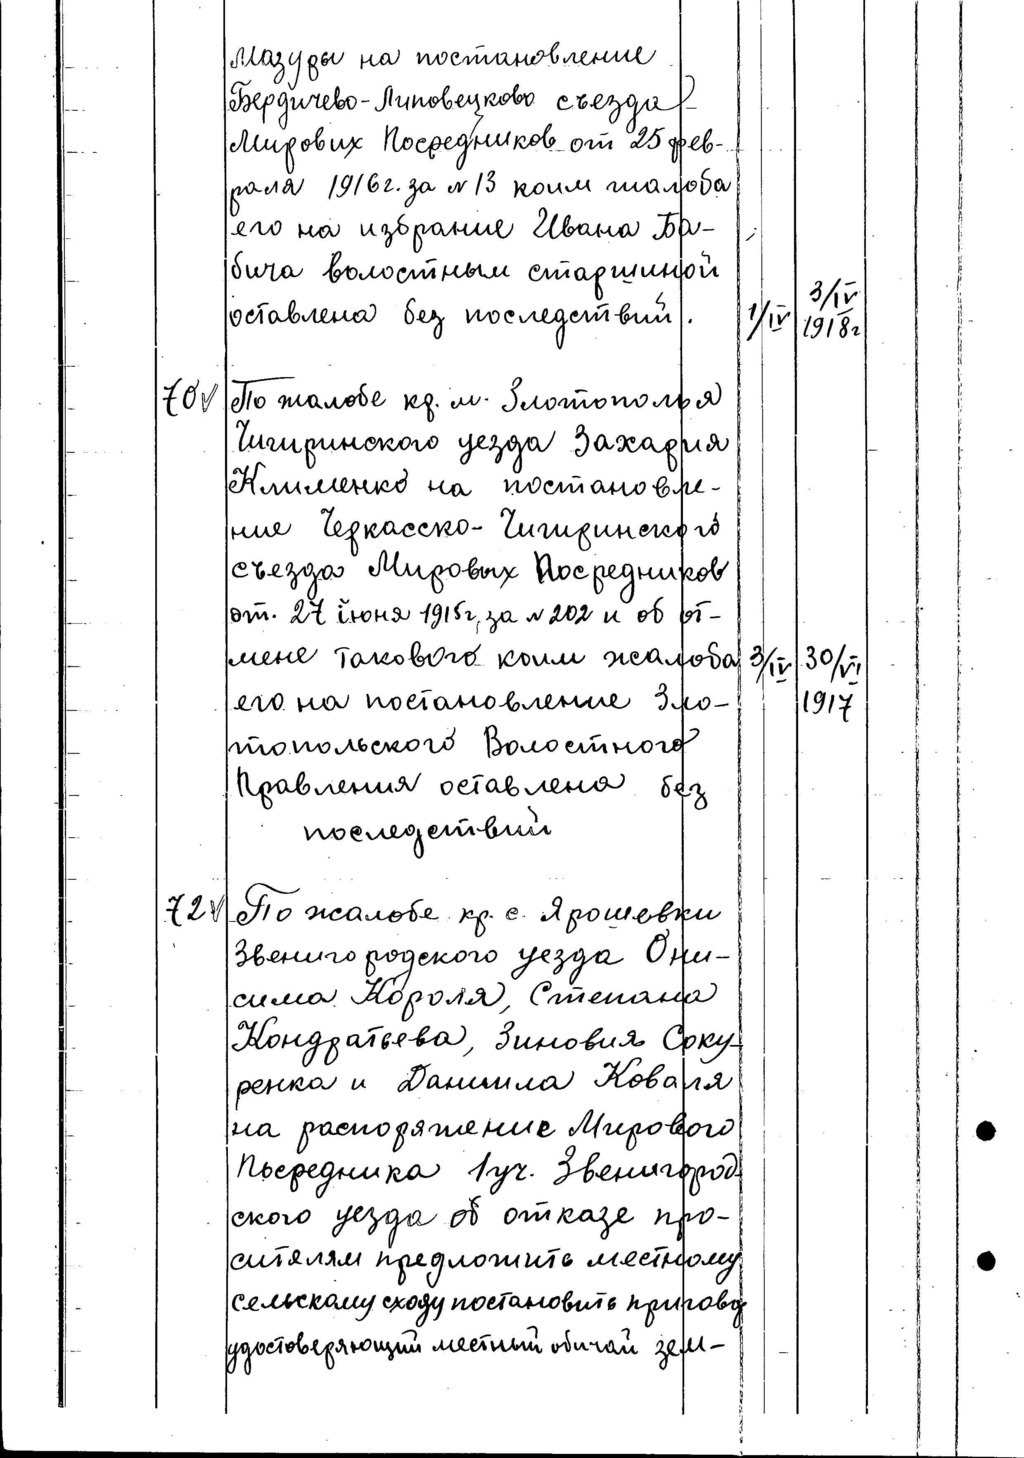 Мазуры на постановление
Бердичево-Липовецково съезда
Мирових Посредников от 25 фев-
раля 1916г. за №13 коим жалоба
его на избрание Ивана Ба-
бича волостным старшиной
оставлена без последствий.
1/IV
3/IV
1918г
70
По жалобе кр. м. Злотополья
Чигиринского уезда Захария
Клименко на постановле-
ние Черкасско-Чигиринского
съезда Мировых Посредников
от. 27 iюня 1915г, за №202 и об от-
мене такового коим жалоба
3/IV
30/VI
его на постановление Зло-
1917
топольского Волостного
Правления оставлена без
последствий
72
По жалобе кр. с. Ярошевки
Звенигородского уезда Они-
сима Короля, Степана
Кондратьева, Зиновия Соку-
ренка и Даниила Коваля
на распоряжение Мирового
Посредника 1уч. Звенигород
ского уезда об отказе про-
сителям предложить местному
сельскому сходу постановить приговор
удостоверяющий местный обичай зем-